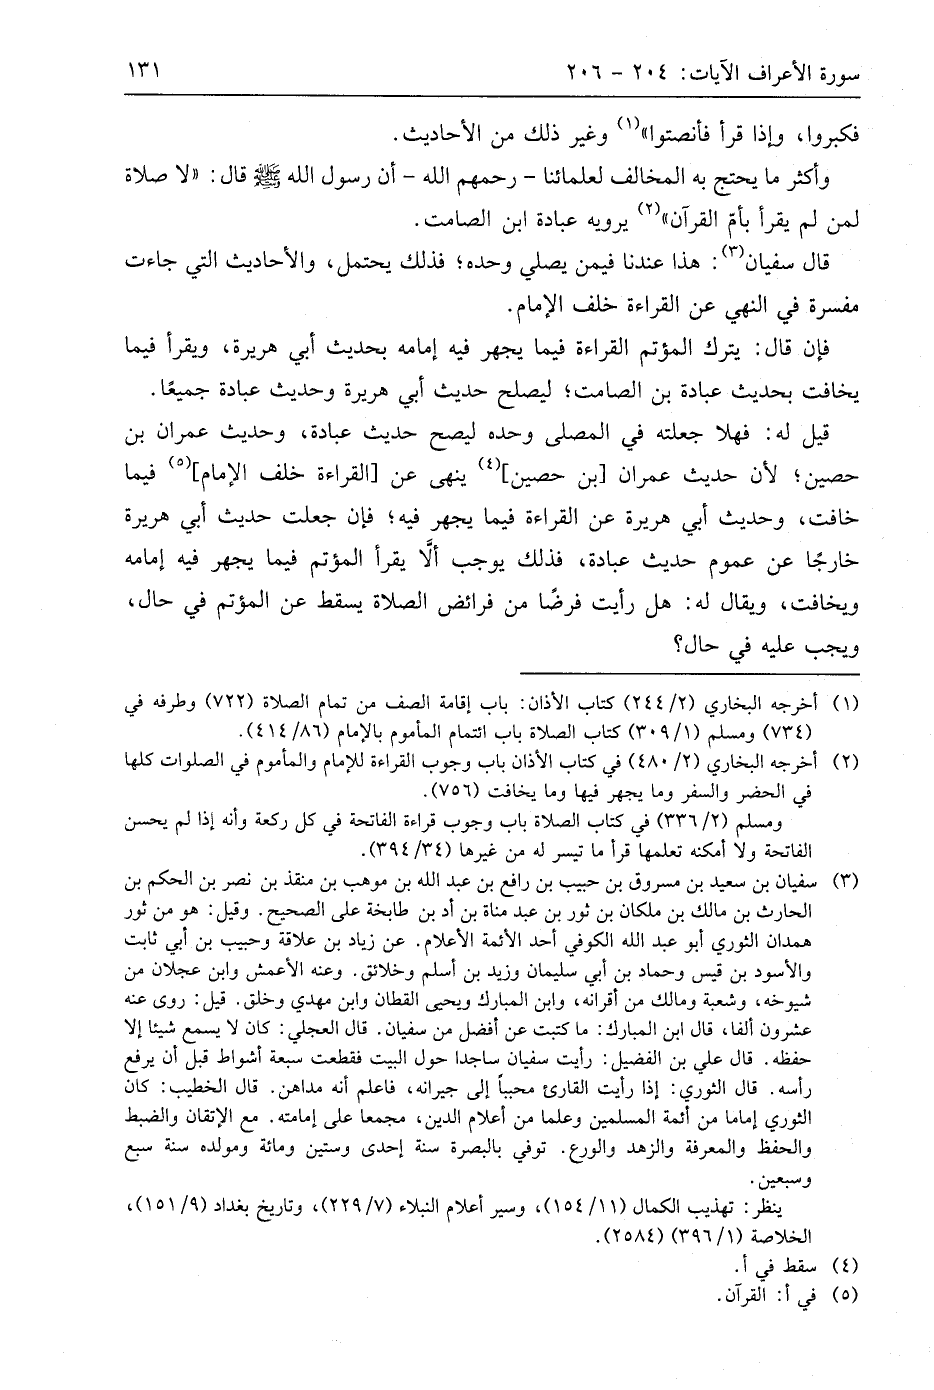 سورة الأعراف الآيات: ٢٠٤ - ٢٠٦
١٣١
فكبروا، وإذا قرأ فأنصتوا»(١) وغير ذلك من الأحاديث.
وأكثر ما يحتج به المخالف لعلمائنا - رحمهم الله - أن رسول الله ﷺ قال: «لا صلاة
لمن لم يقرأ بأمّ القرآن»(٢) يرويه عبادة ابن الصامت.
قال سفيان(٣): هذا عندنا فيمن يصلي وحده؛ فذلك يحتمل، والأحاديث التي جاءت
مفسرة في النهي عن القراءة خلف الإمام.
فإن قال: يترك المؤتم القراءة فيما يجهر فيه إمامه بحديث أبي هريرة، ويقرأ فيما
يخافت بحديث عبادة بن الصامت؛ ليصلح حديث أبي هريرة وحديث عبادة جميعًا.
قيل له: فهلا جعلته في المصلى وحده ليصح حديث عبادة، وحديث عمران بن
حصين؛ لأن حديث عمران [بن حصين](٤) ينهى عن [القراءة خلف الإمام](٥) فيما
خافت، وحديث أبي هريرة عن القراءة فيما يجهر فيه؛ فإن جعلت حديث أبي هريرة
خارجًا عن عموم حديث عبادة، فذلك يوجب ألَّا يقرأ المؤتم فيما يجهر فيه إمامه
ويخافت، ويقال له: هل رأيت فرضًا من فرائض الصلاة يسقط عن المؤتم في حال،
ويجب عليه في حال؟
(١) أخرجه البخاري (٢٤٤/٢) كتاب الأذان: باب إقامة الصف من تمام الصلاة (٧٢٢) وطرفه في
(٧٣٤) ومسلم (٣٠٩/١) كتاب الصلاة باب ائتمام المأموم بالإمام (٤١٤/٨٦).
(٢) أخرجه البخاري (٤٨٠/٢) في كتاب الأذان باب وجوب القراءة للإمام والمأموم في الصلوات كلها
في الحضر والسفر وما يجهر فيها وما يخافت (٧٥٦).
ومسلم (٣٣٦/٢) في كتاب الصلاة باب وجوب قراءة الفاتحة في كل ركعة وأنه إذا لم يحسن
الفاتحة ولا أمكنه تعلمها قرأ ما تيسر له من غيرها (٣٩٤/٣٤).
(٣) سفيان بن سعيد بن مسروق بن حبيب بن رافع بن عبد الله بن موهب بن منقذ بن نصر بن الحكم بن
الحارث بن مالك بن ملكان بن ثور بن عبد مناة بن أد بن طابخة على الصحيح. وقيل: هو من ثور
همدان الثوري أبو عبد الله الكوفي أحد الأئمة الأعلام. عن زياد بن علاقة وحبيب بن أبي ثابت
والأسود بن قيس وحماد بن أبي سليمان وزيد بن أسلم وخلائق. وعنه الأعمش وابن عجلان من
شيوخه، وشعبة ومالك من أقرانه، وابن المبارك ويحيى القطان وابن مهدي وخلق. قيل: روى عنه
عشرون ألفا، قال ابن المبارك: ما كتبت عن أفضل من سفيان. قال العجلي: كان لا يسمع شيئا إلا
حفظه. قال علي بن الفضيل: رأيت سفيان ساجدا حول البيت فقطعت سبعة أشواط قبل أن يرفع
رأسه. قال الثوري: إذا رأيت القارئ محبباً إلى جيرانه، فاعلم أنه مداهن. قال الخطيب: كان
الثوري إماما من أئمة المسلمين وعلما من أعلام الدين، مجمعا على إمامته. مع الإتقان والضبط
والحفظ والمعرفة والزهد والورع. توفي بالبصرة سنة إحدى وستين ومائة ومولده سنة سبع
وسبعين.
ينظر: تهذيب الكمال (١٥٤/١١)، وسير أعلام النبلاء (٢٢٩/٧)، وتاريخ بغداد (١٥١/٩)،
الخلاصة (٣٩٦/١) (٢٥٨٤).
(٤) سقط في أ.
(٥) في أ: القرآن.